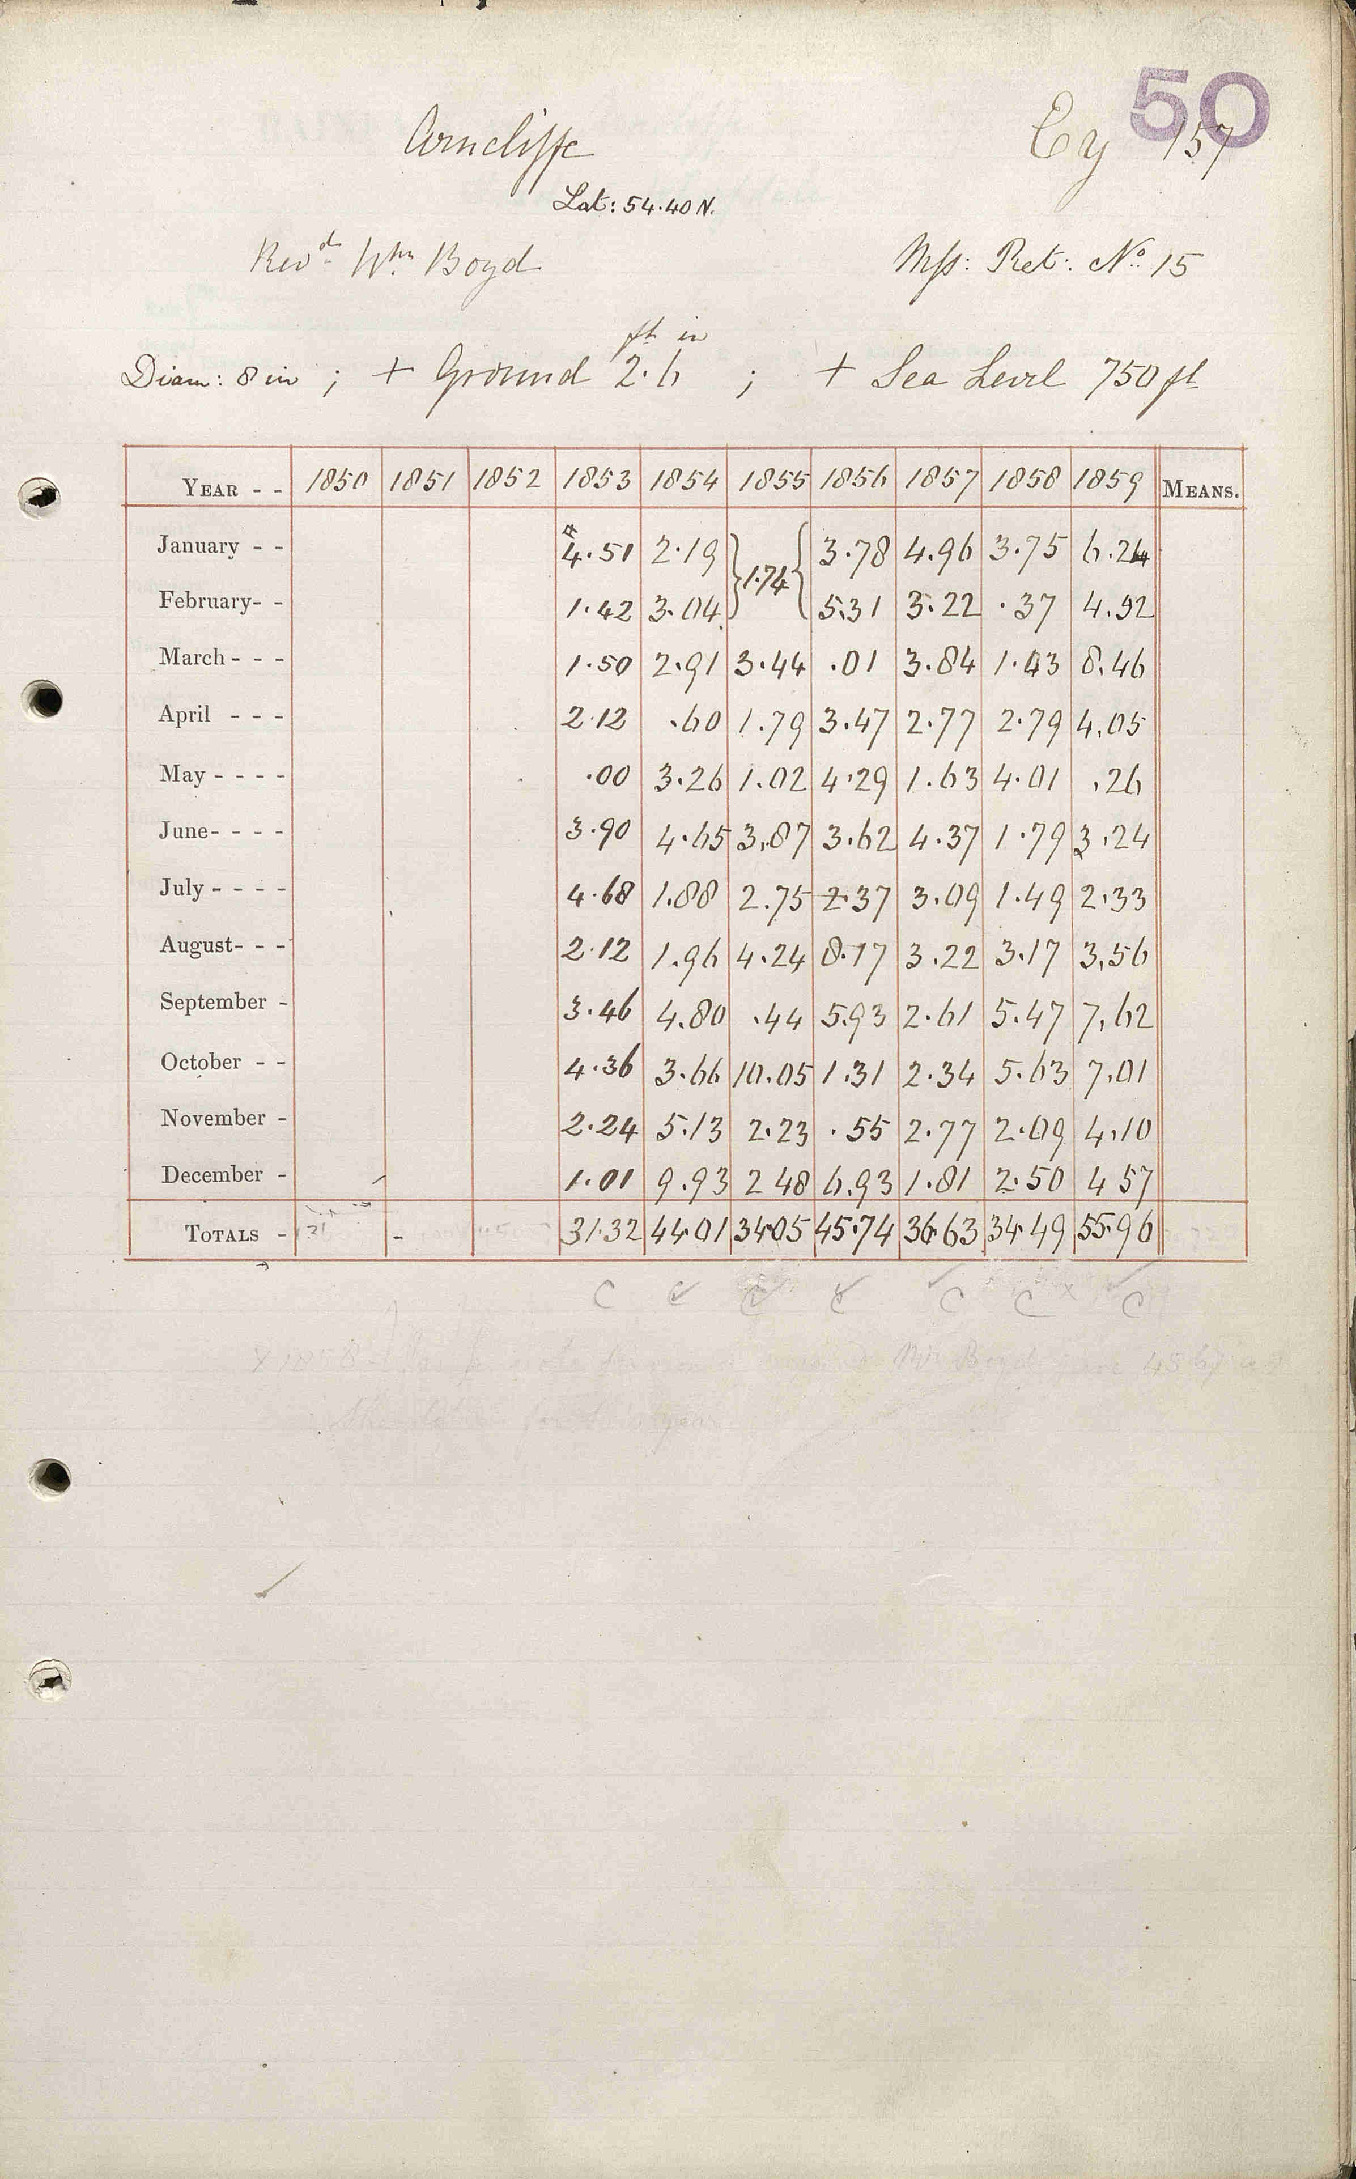 50
Arncliffe
Cy 157
Lat: 54.40 N.
Revd. Wm. Boyd
Mss: Ret: No. 15
ft in
Diam: 8 in ; + Ground 2.6 ; + Sea Level 750 ft
YEAR - - 1850 1851 1852 1853 1854 1855 1856 1857 1858 1859 MEANS.
January - - 4.51 2.19 } 1.74 { 3.78 4.96 3.75 6.24
February- - 1.42 3.04 5.31 3.22 .37 4.52
March - - - 1.50 2.91 3.44 .01 3.84 1.43 8.46
April - - - 2.12 .60 1.79 3.47 2.77 2.79 4.05
May - - - - .00 3.26 1.02 4.29 1.63 4.01 .26
June- - - - 3.90 4.65 3.87 3.62 4.37 1.79 3.24
July - - - - 4.68 1.88 2.75 2.37 3.09 1.49 2.33
August- - - 2.12 1.96 4.24 8.17 3.22 3.17 3.56
September - 3.46 4.80 .44 5.93 2.61 5.47 7.62
October - - 4.36 3.66 10.05 1.31 2.34 5.63 7.01
November - 2.24 5.13 2.23 .55 2.77 2.09 4.10
December - 1.01 9.93 2 48 6.93 1.81 2.50 4 57
TOTALS - 31.32 44.01 34.05 45.74 36.63 34.49 55.96
C C C C C C C